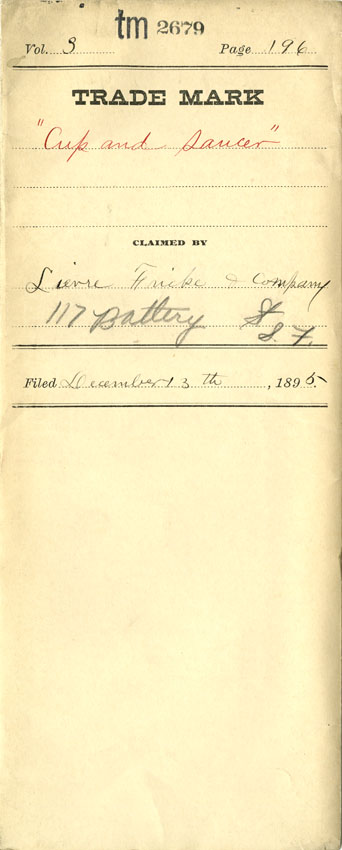 tm 2679
Vol. 3 Page 196
TRADE MARK
"Cup and Saucer"
CLAIMED BY
Lievre Fricke & Company
117 Battery St
S. F.
Filed December 13th, 1895.